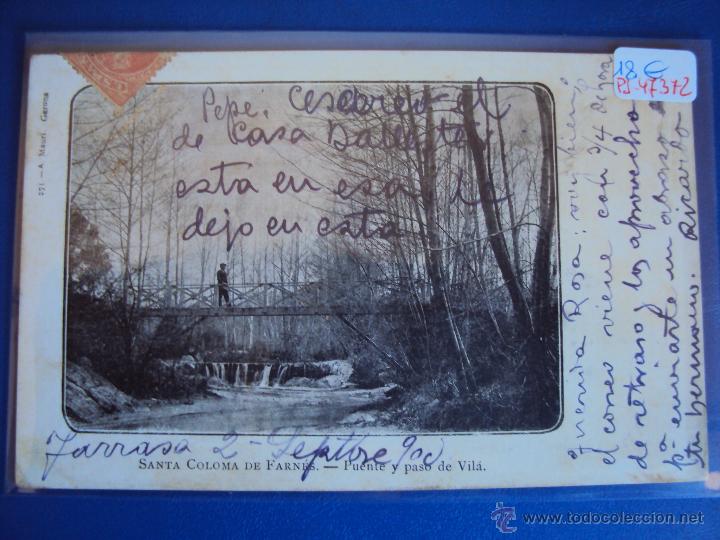 18 €
PJ-47372
271. — A. Mauri. Gerona
Pepe.
el
de Casa
esta en esa. le
dejo en esta
Tarrasa 2 - Septbre 900
SANTA COLOMA DE FARNÉS. — Puente y paso de Vilá.
Querida Rosa: muy bien
el correo viene con 3/4 de hora
de retraso y los aprovecho
pª enviarte un abrazo
tu hermano. Ricardo
www.todocoleccion.net